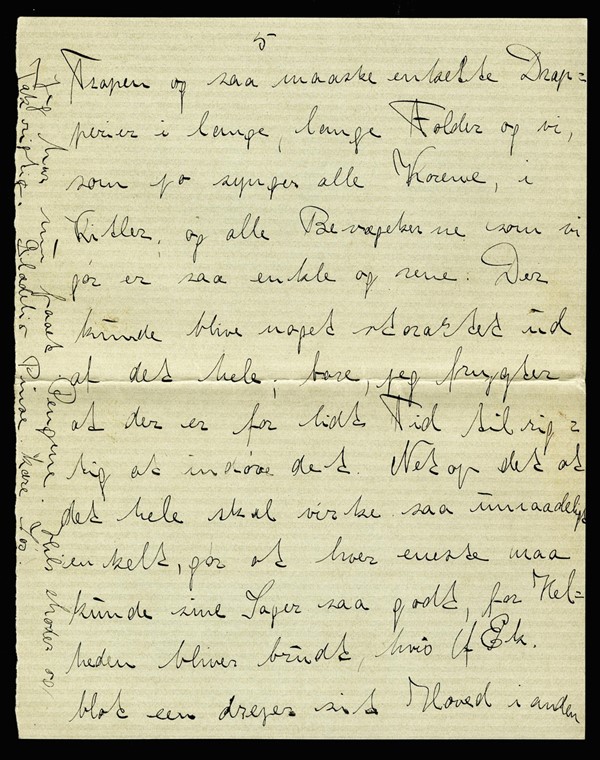 5
Trapen og saa maaske enkelte Drap=
perier i lange, lange Folder og vi,
som jo synger alle Korene, i
Kitler, og alle Bevægelserne som vi
gør er saa enkle og rene. Der
kunde blive noget storartet ud
af det hele, bare, jeg frygter
at der er for lidt Tid til rig=
tig at indøve det. Netop det at
det hele skal virke saa umaadeligt
enkelt, gør at hver eneste maa
kunde sine Sager saa godt, for Hel=
heden bliver brudt, hvis f Eks.
blot een drejer sit Hoved i anden
Jeg har nu faaet Pengene. Hils Moder og
Tak rigtig. Glædelig Pinse kære